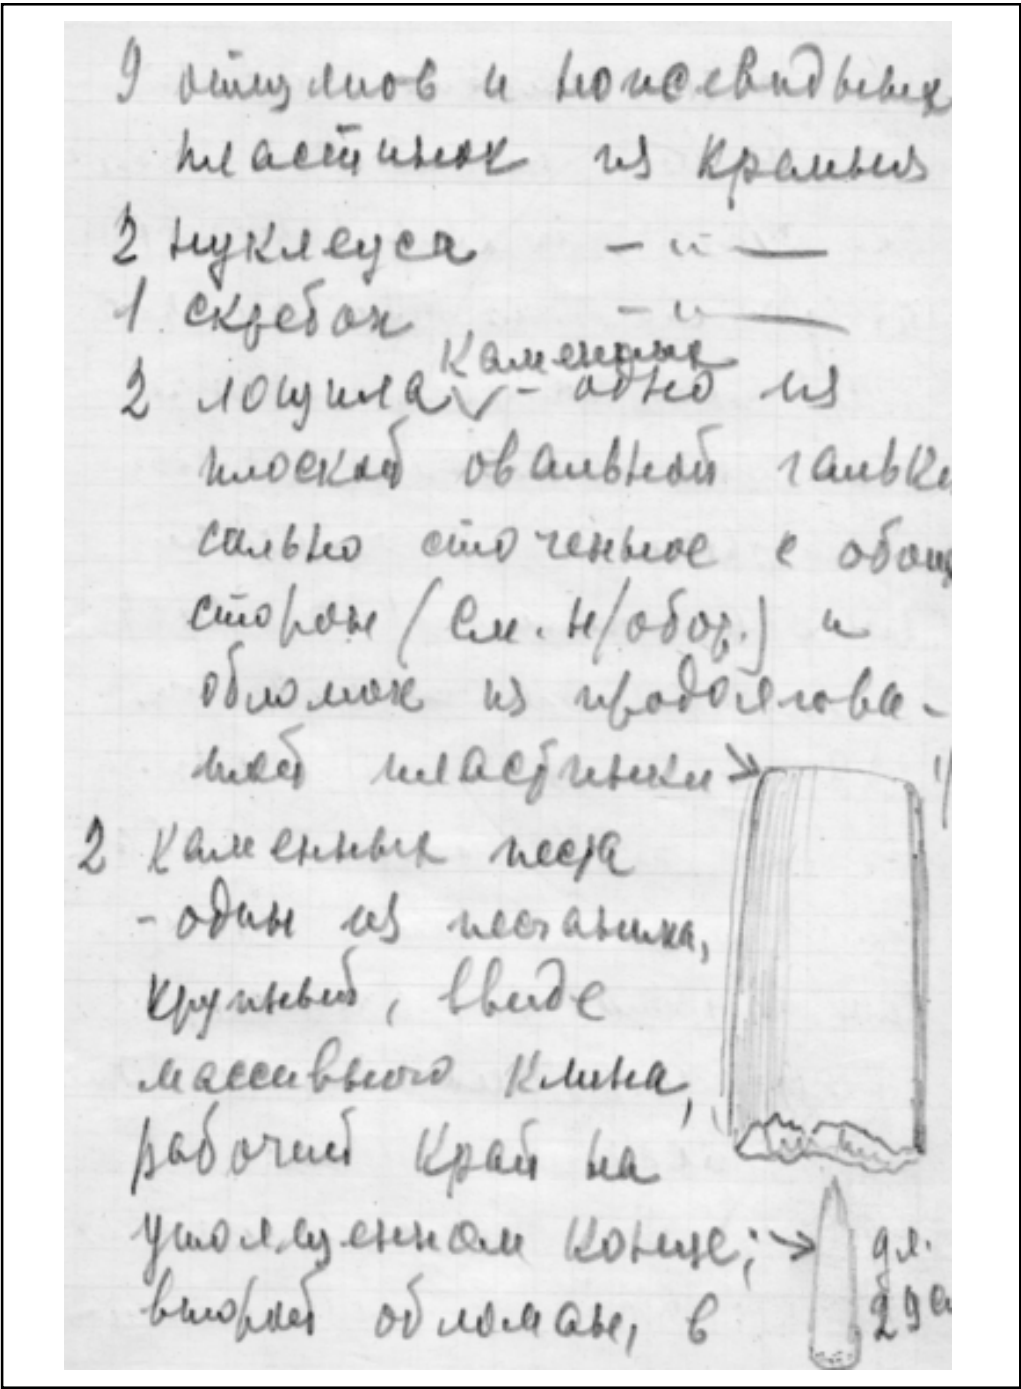 9 отщепов и ножевидных
пластинок из кремния
2 нуклеуса — " —
1 скребок — " —
каменных
2 лощила - одно из
плоской овальной гальки
сильно сточенное с обоих
сторон (См. н/обор.) и
обломок из продолгова-
той пластинки
2 каменных песта
- один из песчаника,
крупный, ввиде
массивного клина,
рабочий край на
утолщенном конце;
второй обломан, в
дл.
29 см